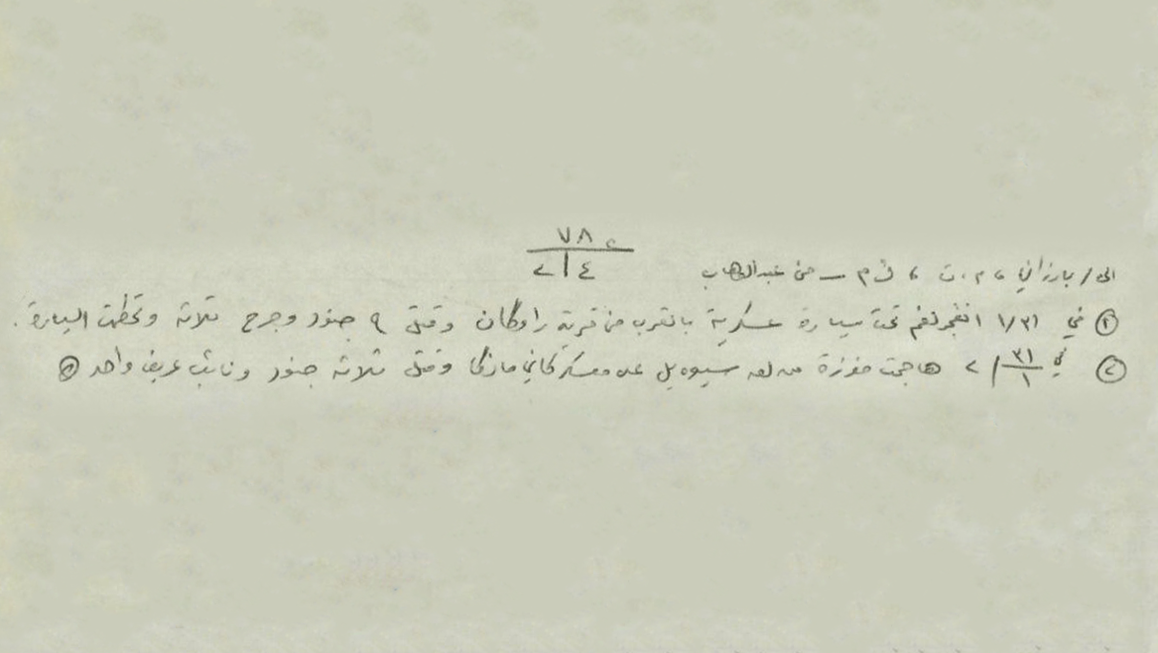 ٧٨
٢ | ٤
الى / بارزاني ، م . ت ، ق م ــ من عبدالوهاب
① في ١/٣١ انفجر لغم تحت سيارة عسكرية بالقرب من قرية راوگان وقتل ٩ جنود وجرح ثلاثة وتحطمت السيارة .
② في ٣١/١ هاجمت مفرزة من لق سيوه يل على معسكر كاني مازگا وقتل ثلاثة جنود ونائب عريف واحد